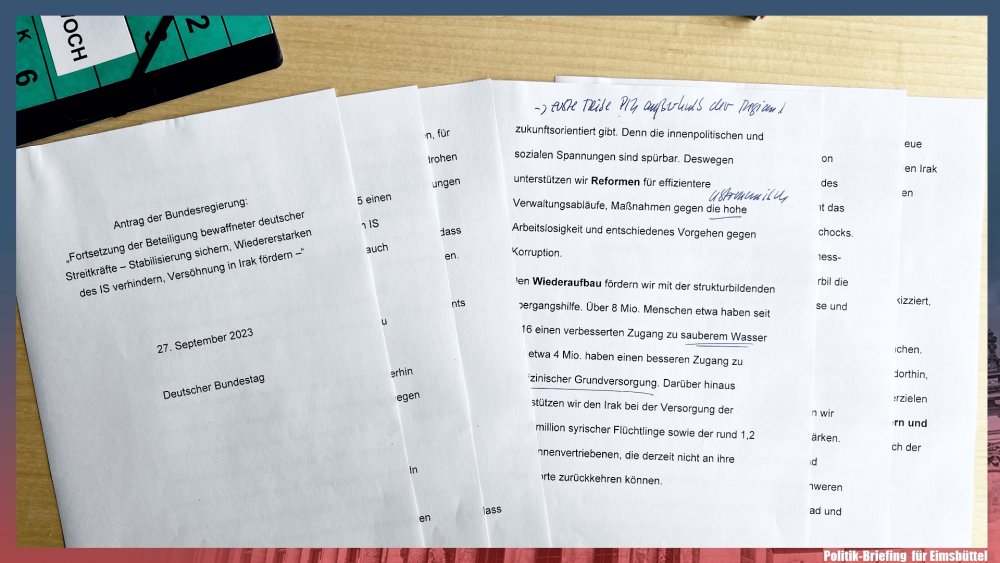 OCH
K 6
2
Antrag der Bundesregierung:
„Fortsetzung der Beteiligung bewaffneter deutscher
Streitkräfte – Stabilisierung sichern, Wiedererstarken
des IS verhindern, Versöhnung in Irak fördern –“
27. September 2023
Deutscher Bundestag
5 einen
n IS
auch
u
erhin
egen
In
en
n, für
drohen
ungen
dass
en.
nts
lass
außerhalb der
zukunftsorientiert gibt. Denn die innenpolitischen und
sozialen Spannungen sind spürbar. Deswegen
unterstützen wir Reformen für effizientere
Verwaltungsabläufe, Maßnahmen gegen die hohe
Arbeitslosigkeit und entschiedenes Vorgehen gegen
Korruption.
en Wiederaufbau fördern wir mit der strukturbildenden
bergangshilfe. Über 8 Mio. Menschen etwa haben seit
16 einen verbesserten Zugang zu sauberem Wasser
etwa 4 Mio. haben einen besseren Zugang zu
zinischer Grundversorgung. Darüber hinaus
stützen wir den Irak bei der Versorgung der
million syrischer Flüchtlinge sowie der rund 1,2
nnenvertriebenen, die derzeit nicht an ihre
orte zurückkehren können.
on
des
t das
chocks.
ness-
rbil die
se und
n wir
ärken.
d
hweren
ad und
eue
en Irak
en
kizziert,
chen.
dorthin,
erzielen
ern und
ch der
Politik-Briefing für Eimsbüttel